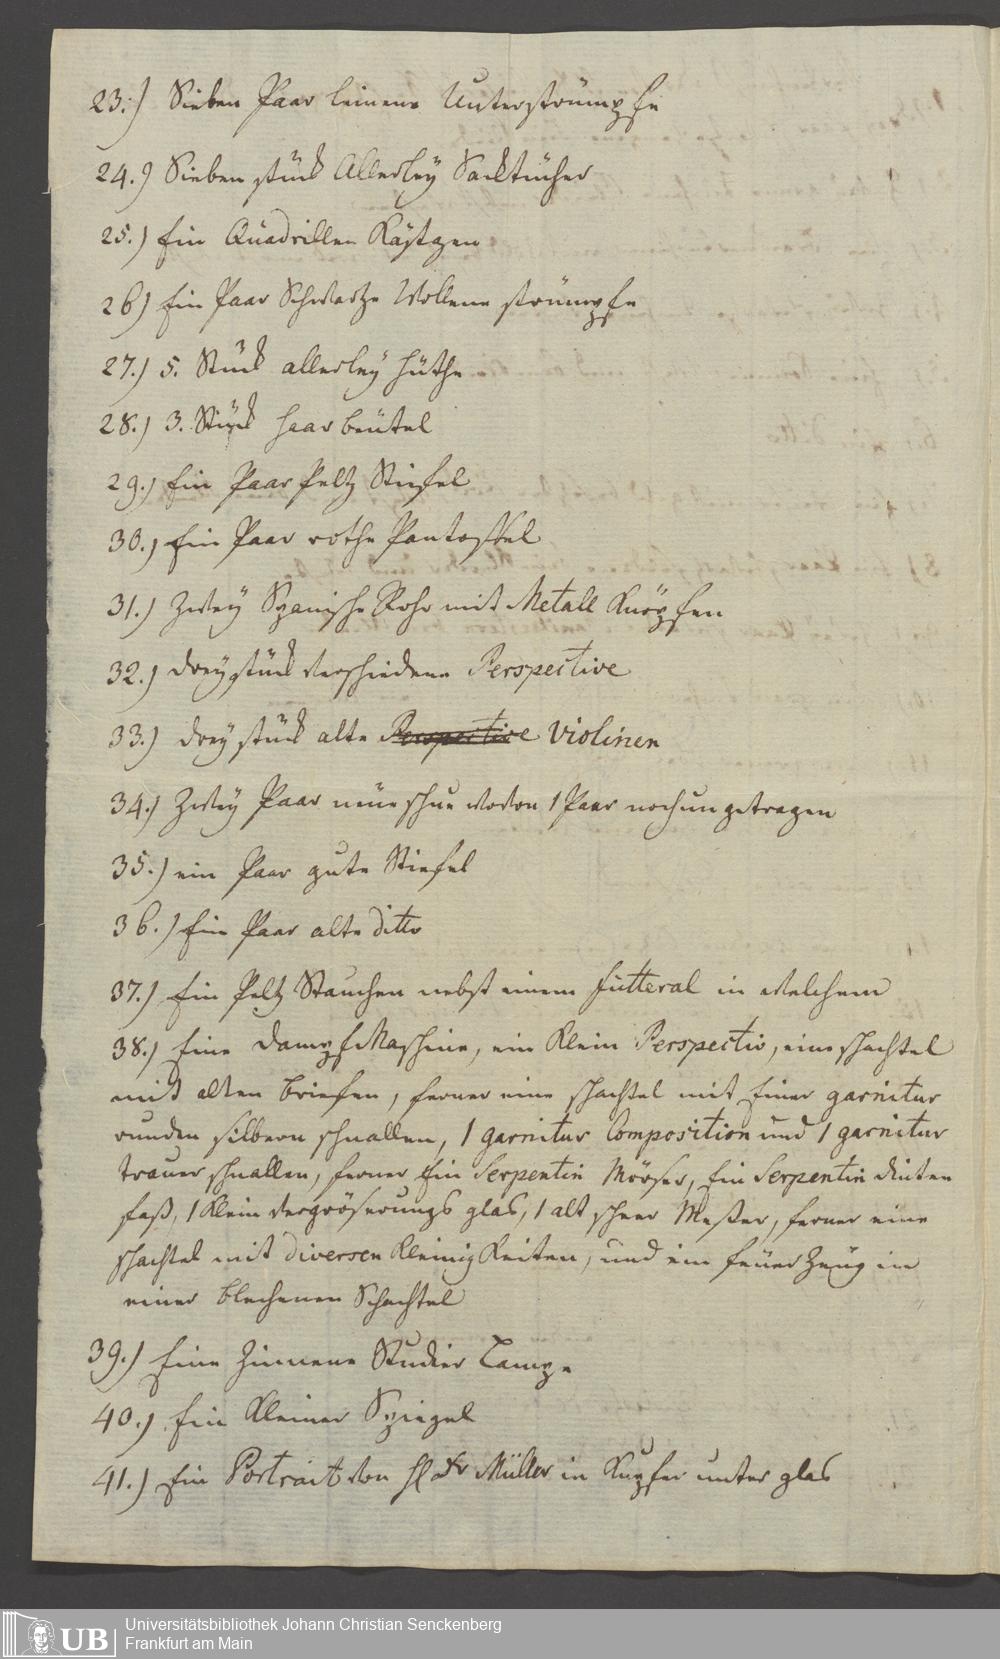 23.) Sieben Paar leinene Unterstrümpfe
24.) Sieben stück Allerley Sacktücher
25.) Ein Quadrillen Kästgen
26) Ein Paar Schwartze Wollene strümpfe
27.) 5. Stück allerley hüthe
28.) 3. Stück haar beütel
29.) Ein Paar Peltz Stiefel
30.) Ein Paar rothe Pantoffel
31.) Zwey Spanische Rohr mit Metall Knöpfen
32.) drey stück verschiedene Perspective
33.) drey stück alte Perspective Violinen
34.) Zwey Paar neüe schue wovon 1 Paar noch ungetragen
35.) ein Paar gute Stiefel
36.) Ein Paar alte ditto
37.) Ein Peltz Stauchen nebst einem futteral in welchem
38.) Eine Dampf Maschine, ein Klein Perspectiv, eine schachtel
mit alten briefen, ferner eine schachtel mit Einer garnitur
runden silbern schnallen, 1 garnitur Composition und 1 garnitur
trauer schnallen, ferner Ein Serpentin Mörser, Ein Serpentin dinten
faß, 1 Klein vergröserungs glas, 1 alt scheer Meßer, ferner eine
schachtel mit diversen Kleinig Keiten, und ein feüer Zeüg in
einer blechenen Schachtel
39.) Eine Zinnene Studier Lampe
40.) Ein Kleiner Spiegel
41.) Ein Portrait von H Dr Müller in Kupfer unter glas
UB
Universitätsbibliothek Johann Christian Senckenberg
Frankfurt am Main